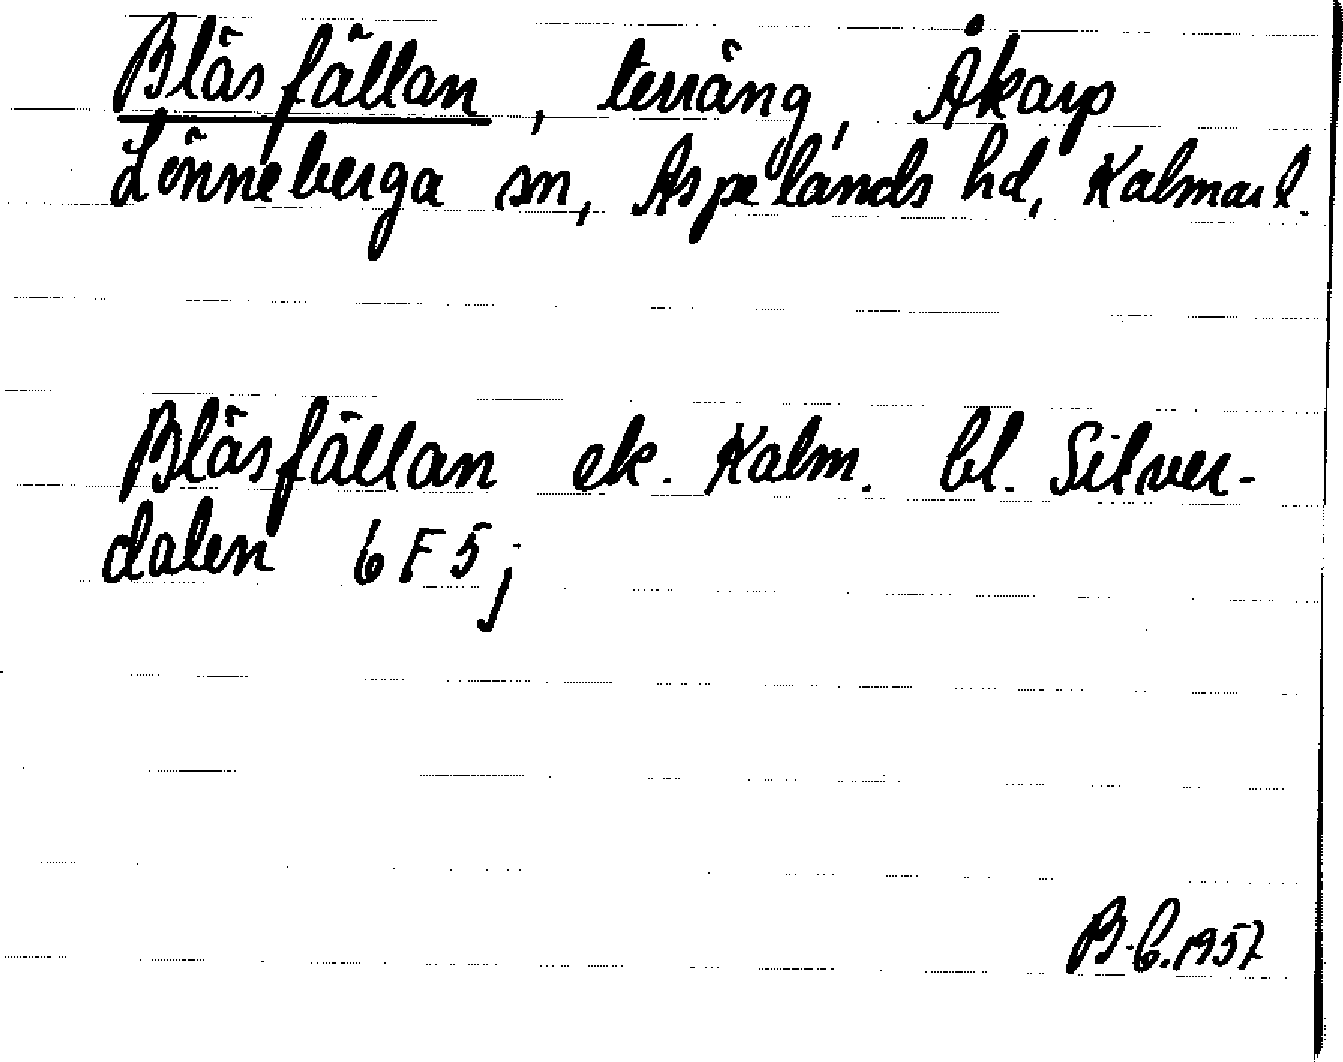 Bläsfällan, terräng, Åkarp
Lönneberga sn, Aspelands hd, Kalmar l.
Bläsfällan ek. Kalm. bl. Silver-
dalen 6 F 5 j
B-C. 1957